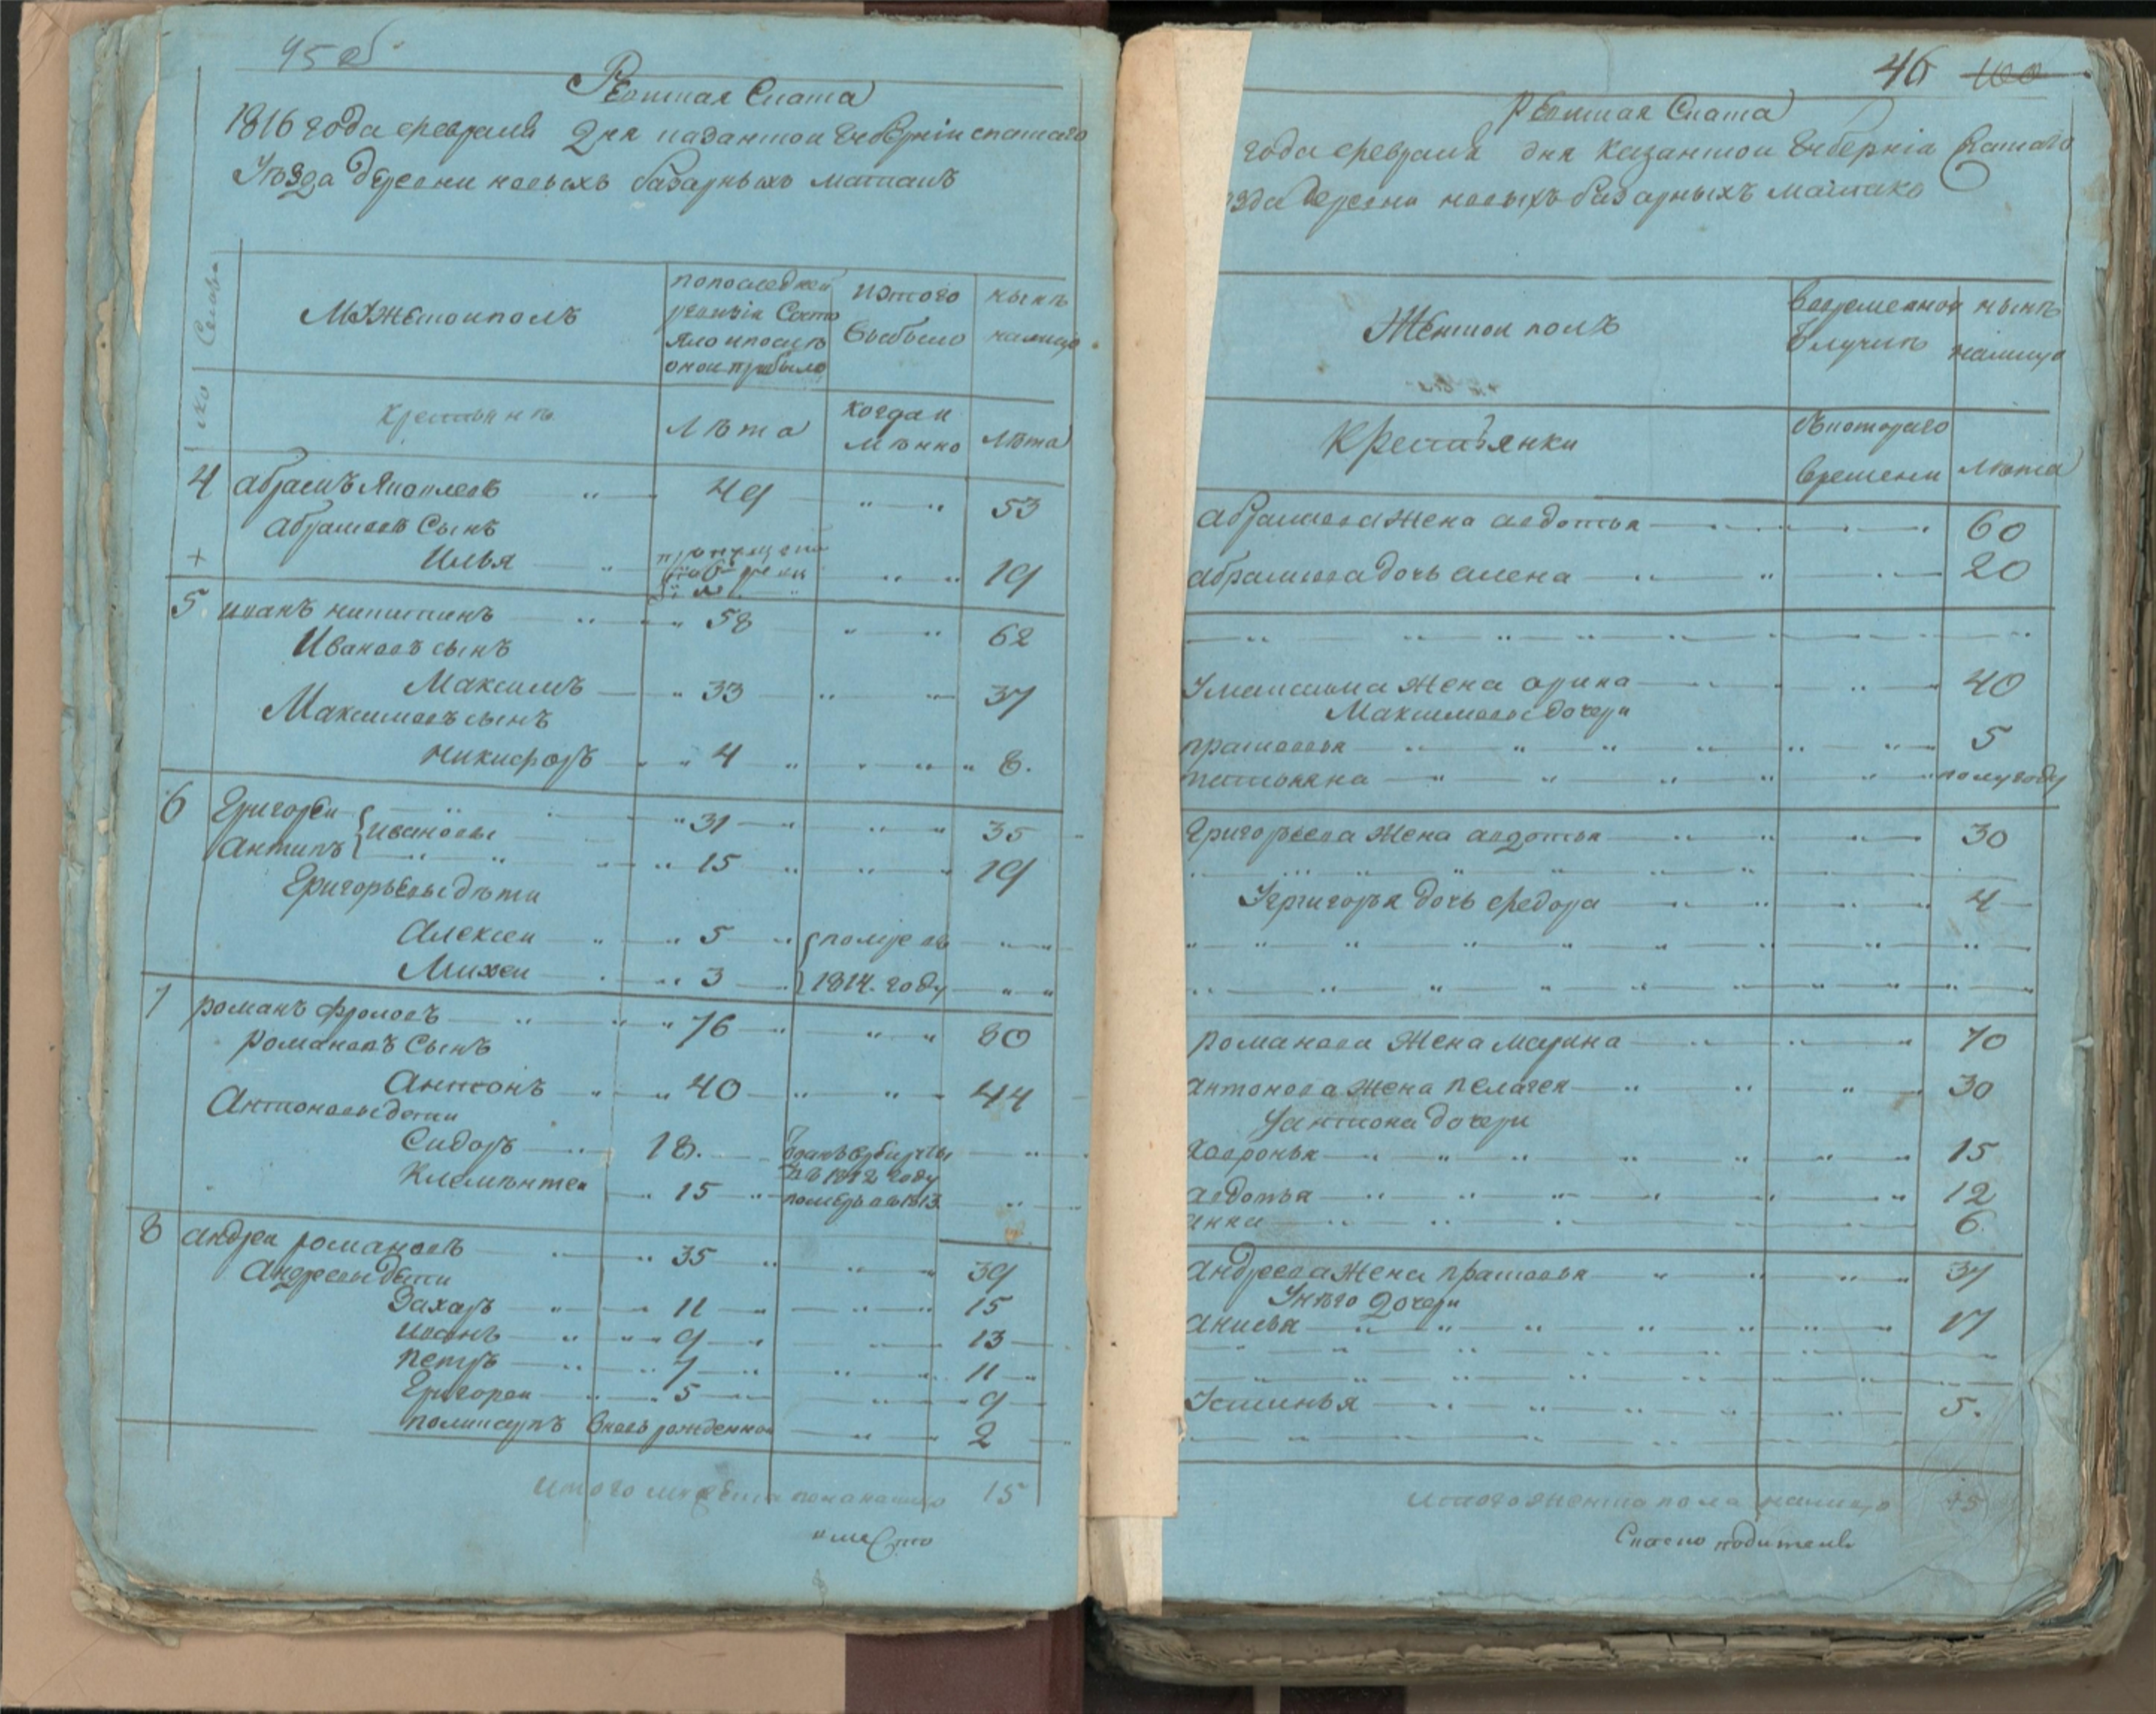 45 об
Ревитская Скаска
1816 года февраля дня казанской губерніи спаскаго
Уѣзда деревни новыхъ базарныхъ матакъ
Семьи
Мужеской полъ
попоследней
ревизіи Состо
яло ипослѣ
оной прибыло
Изтого
выбыло
нынѣ
налицо
крестьянѣ
Лѣта
когда и
мѣнно
лѣта
4 абрамъ Яковлевъ 49 53
абрамовъ Сынъ
+ Илья пропущенъ 19
5 иванъ никитинъ 58 62
Ивановъ сынъ
Максимъ 33 37
Максимовъ сынъ
никифоръ 4 8.
6 Григорей 31 35
Антипъ ивановы 15 19
Григорьевы дѣти
Алексей 5 помре въ
Михей 3 1814. году
7 романъ фроловъ 76 80
романовъ Сынъ
Антонъ 40 44
Антоновы дети
Сидоръ 18. 1812 году
Клементей 15 померъ въ 1813
8 андрей романовъ 35 39
Андреевы дети
Захаръ 11 15
иванъ 9 13
петръ 7 11
Григорей 5 9
поликарпъ вновь рожденной 2
итого мужеска пола налицо 15
46 100
Ревитская Скаска
года февраля дня казанской губерніи Спаскаго
ѣзда деревни новыхъ базарныхъ матакъ
Женской полъ
вовременной
отлучкѣ
нынѣ
налицо
Крестьянки
съкотораго
времени
лѣта
абрамова жена авдотья 60
абрамова дочь алена 20
Умаксима жена арина 40
Максимовы дочери
прасковья 5
татьяна полугоду
Григорьева жена авдотья 30
Угригорья дочь федора 4
романова жена марина 70
антонова жена пелагея 30
Уантона дочери
ховронья 15
авдотья 12
анна 6.
андреева жена прасковья 37
Унѣго дочери
анисья 17
Устинья 5.
итого женска пола налицо 15